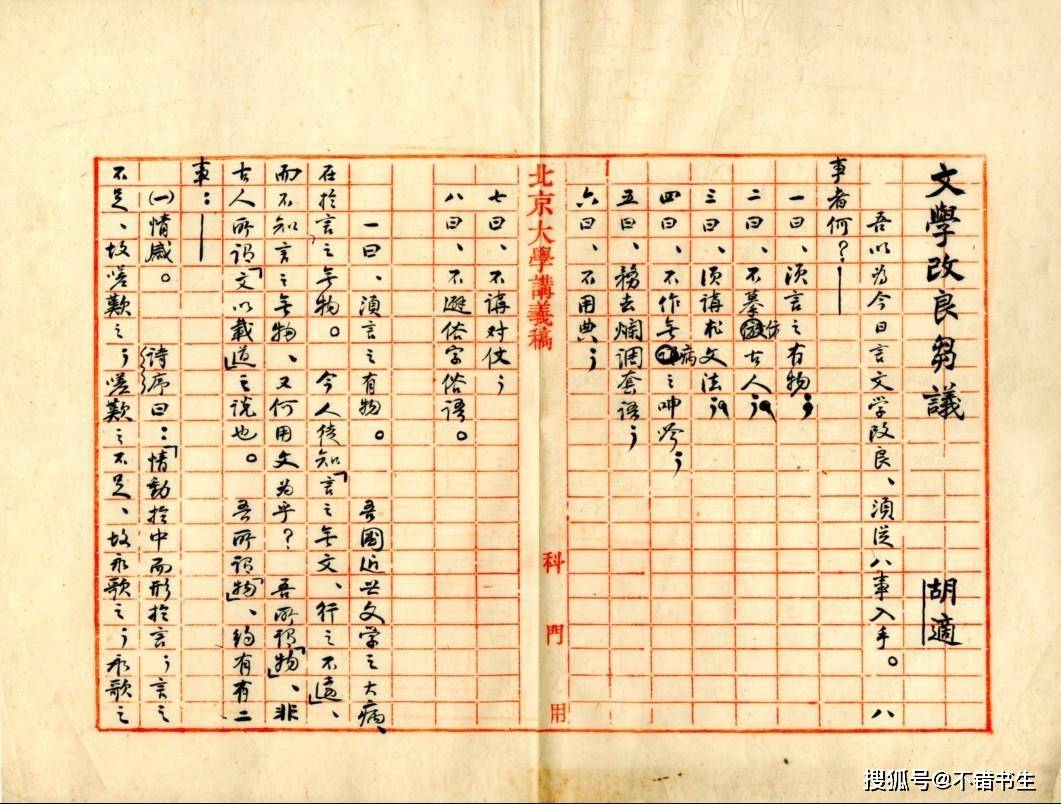 文學改良芻議 胡適
吾以為今日言文学改良、須從八事入手。八
事者何？——
一曰、須言之有物；
二曰、不摹仿古人；
三曰、須講求文法；
四曰、不作無病之呻吟；
五曰、務去爛調套語；
六曰、不用典；
北京大學講義稿 科門用
七曰、不講对仗；
八曰、不避俗字俗語。
一曰、須言之有物。吾國近世文学之大病、
在於言之無物。今人徒知「言之無文、行之不遠」、
而不知言之無物、又何用文為乎？吾所謂「物」、非
古人所謂「文以載道」之說也。吾所謂「物」、約有有二
事：——
㈠情感。詩序曰：「情動於中而形於言；言之
不足、故嗟歎之；嗟歎之不足、故永歌之；永歌之
搜狐号@不错书生